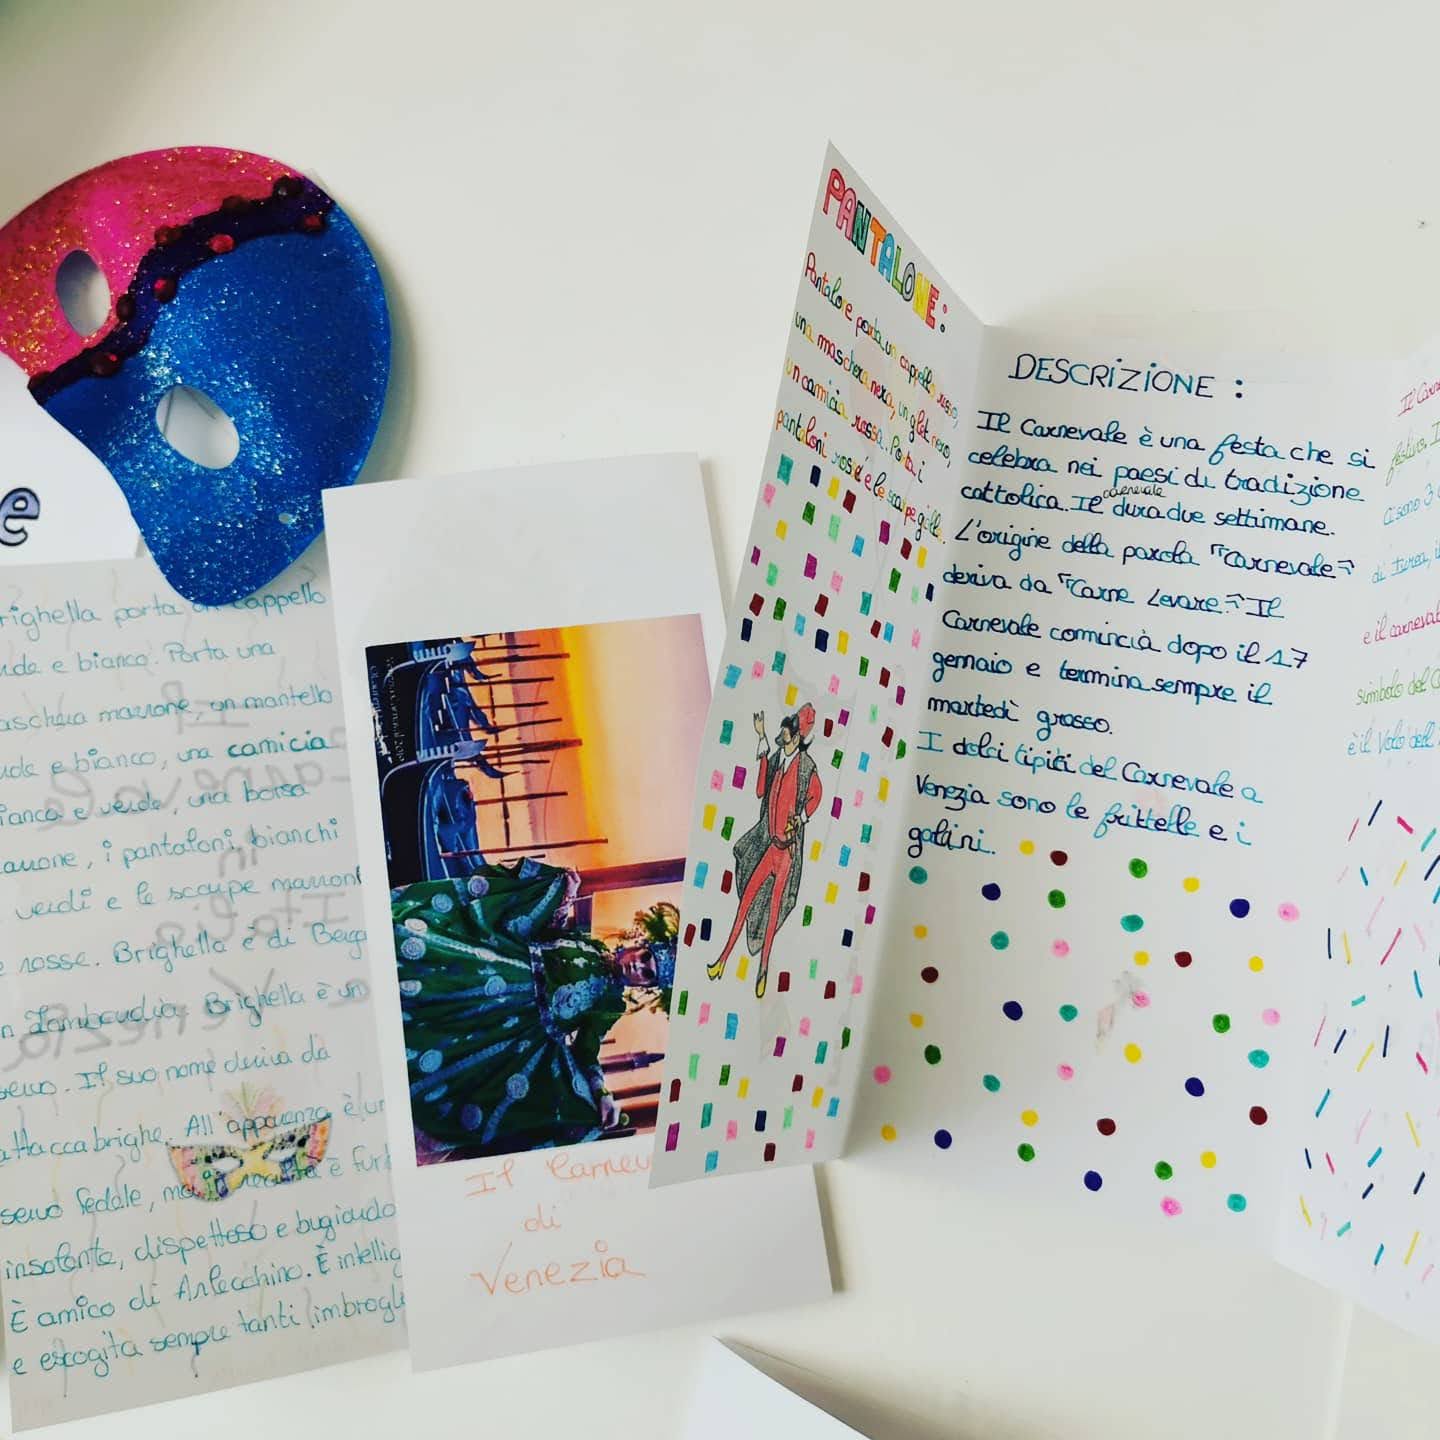 e
righella porta un cappello
verde e bianco. Porta una
maschera marrone, un mantello
verde e bianco, una camicia
bianca e verde, una borsa
marrone, i pantaloni bianchi
verdi e le scarpe marroni
e rosse. Brighella è di Berga
in Lombardia. Brighella è un
servo. Il suo nome deriva da
attaccabrighe. All'apparenza è un
servo fedele, ma in realtà è furb
insolente, dispettoso e bugiardo
È amico di Arlecchino. È intellig
e escogita sempre tanti imbrogli
Il Carnev
di
Venezia
PANTALONE:
Pantalone porta un cappello rosso,
una maschera nera, un gilet nero,
un camicia rossa. Porta i
pantaloni rosi e le scarpe gialle.
DESCRIZIONE:
Il Carnevale è una festa che si
celebra nei paesi di tradizione
cattolica. Il carnevale dura due settimane.
L'origine della parola "Carnevale"
deriva da "Carne Levare". Il
Carnevale comincia dopo il 17
gennaio e termina sempre il
martedì grasso.
I dolci tipici del Carnevale a
Venezia sono le frittelle e i
galani.
Il Carne
festivo. I
Ci sono 3
di
e il carneval
simbolo del C
è il Volo dell'